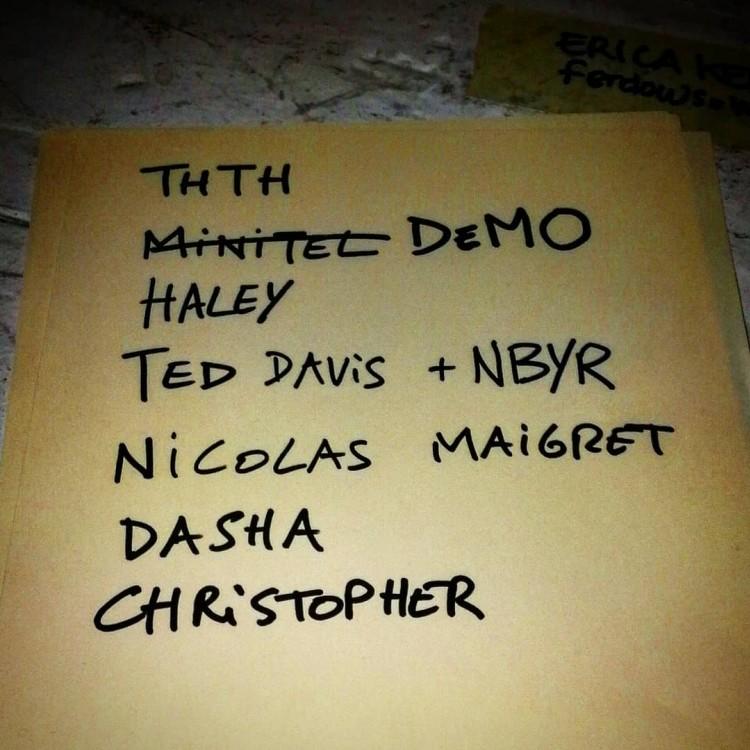 ERICA
THTH
MiNiTEL DeMO
HALEY
TED DAViS + NBYR
NiCOLAS MAiGRET
DASHA
CHRiSTOPHER